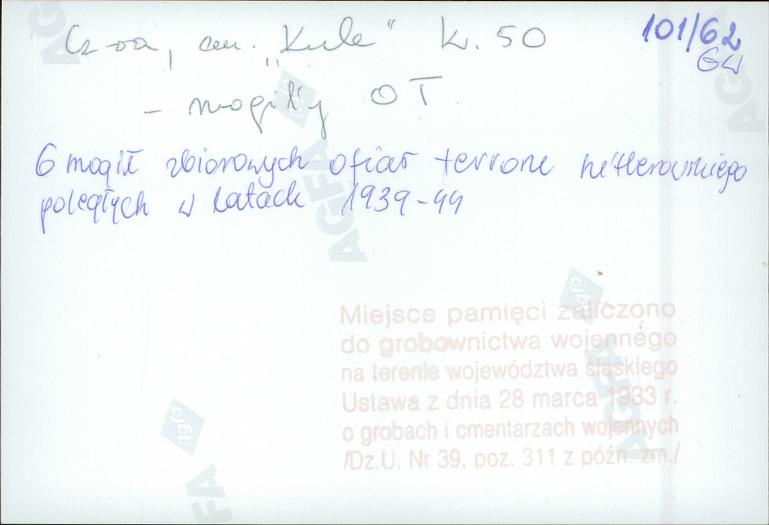 Cz-wa, cm. „Kule" k. 50
101/62
GW
- mogiły OT
6 mogił zbiorowych ofiar terroru hitlerowskiego
poległych w latach 1939-44
Miejsce pamięci zaliczono
do grobownictwa wojennego
na terenie województwa śląskiego
Ustawa z dnia 28 marca 1933 r.
o grobach i cmentarzach wojennych
/Dz.U. Nr 39, poz. 311 z późn. zm./
AGFA
Agfa
AGFA
Agfa
AGFA
Agfa
FA